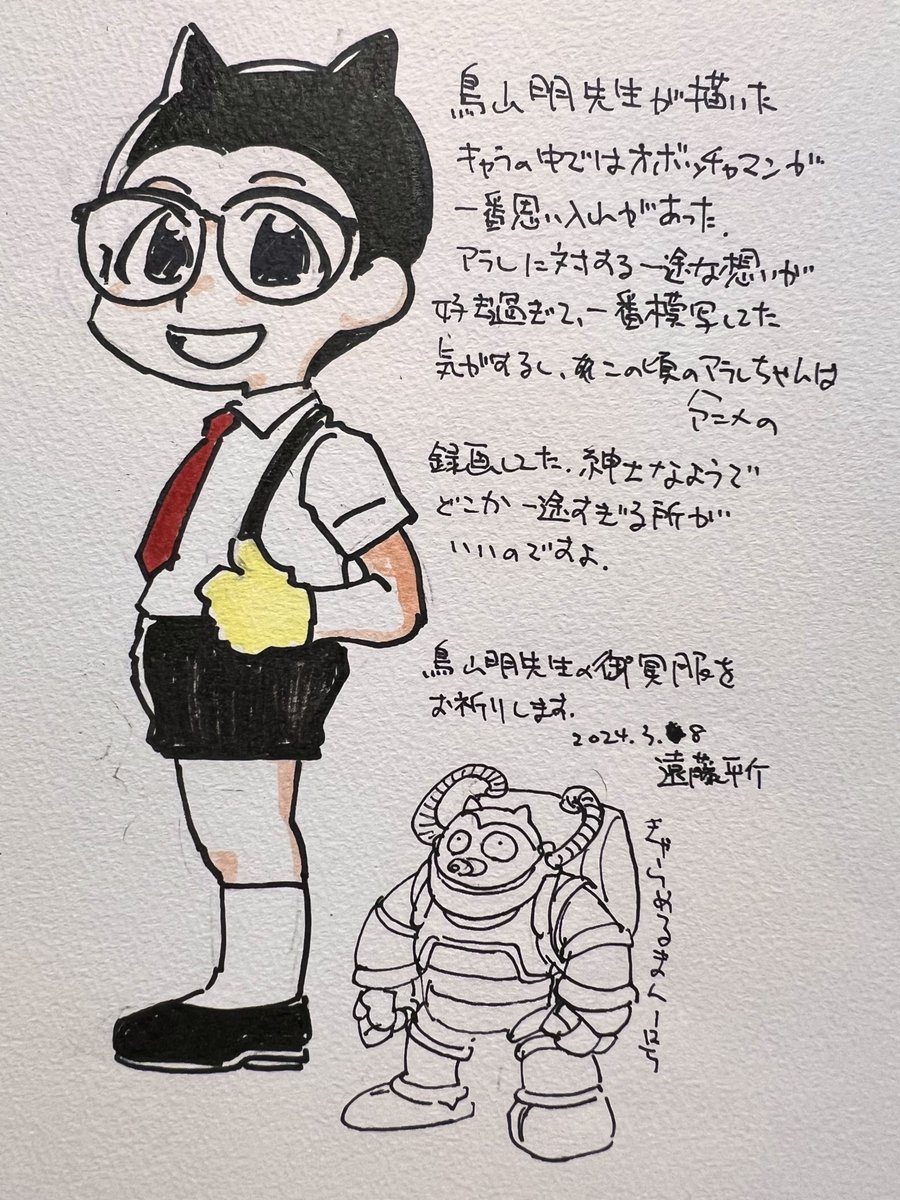 鳥山明先生が描いた
キャラの中ではオボッチャマンが
一番思い入れがあった.
アラレに対する一途な想いが
好き過ぎて、一番模写してた
気がするし、この頃のアラレちゃんは
アニメの
録画してた.紳士なようで
どこか一途すぎる所が
いいのですよ.
鳥山明先生の御冥服を
お祈りします.
2024.3.8
遠藤平介
きゃらめるまん